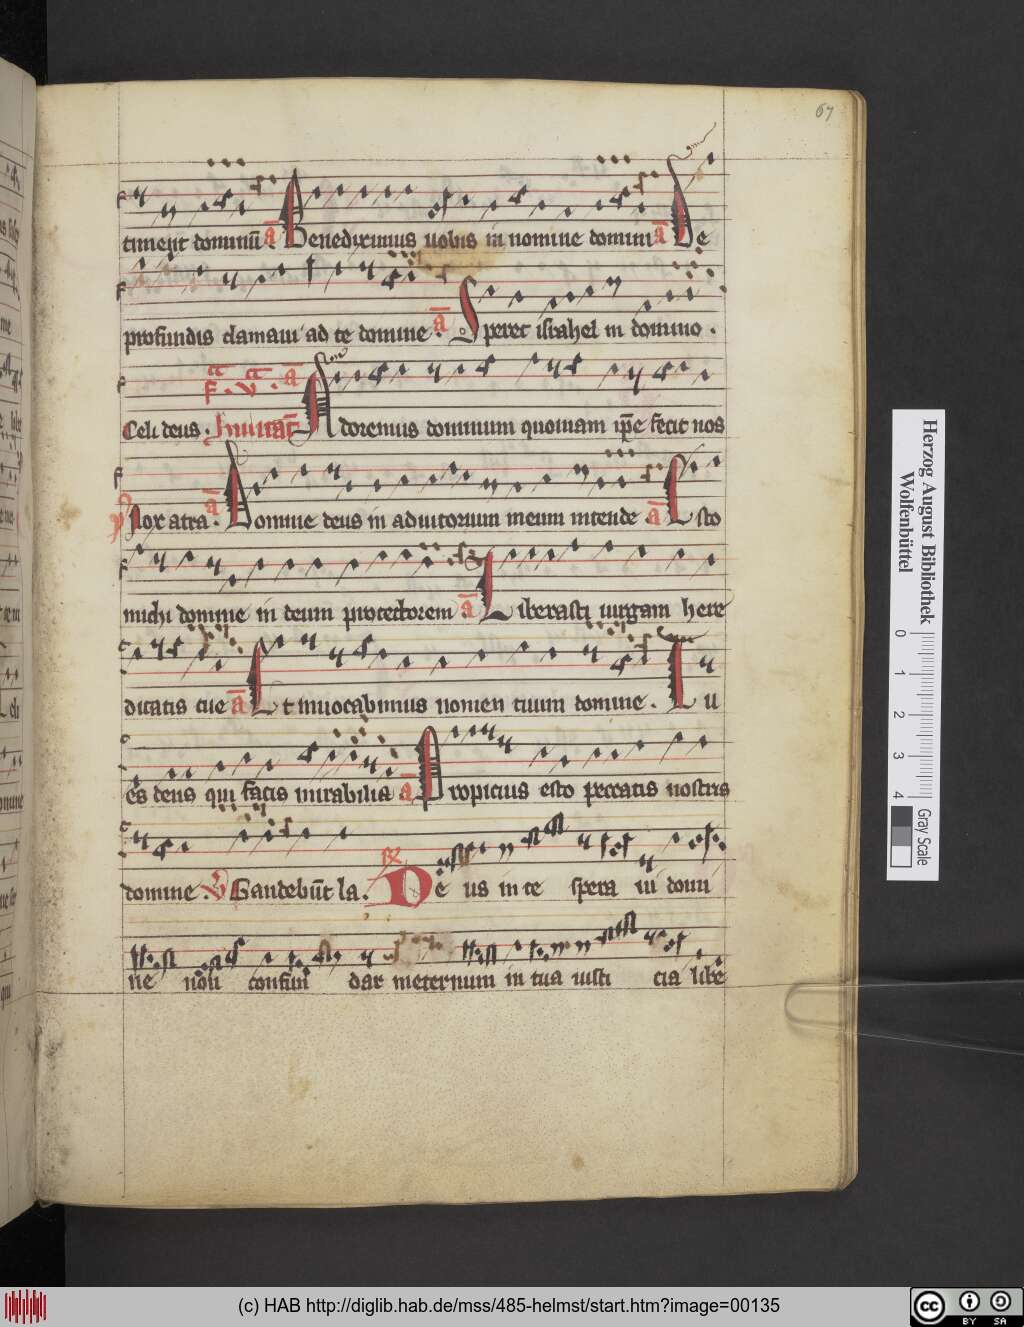 67
timent dominū a Benediximus uobis in nomine domini a De
profundis clamaui ad te domine . a Speret israhel in domino .
F . v . a
Celi deus . Inuitat Adoremus dominum quoniam ip̄e fecit nos
Nox atra . a Domine deus in adiutorium meum intende a Esto
michi domine in deum protectorem a Liberasti uirgam here
ditatis tue a Et inuocabimus nomen tuum domine . Tu
es deus qui facis mirabilia a Propicius esto peccatis nostris
domine . v Gaudebūt la . R Deus in te spera ui domi
ne non confun dar in eternum in tua iusti cia libe
Herzog August Bibliothek
Wolfenbüttel
0 1 2 3 4
Gray Scale
(c) HAB http://diglib.hab.de/mss/485-helmst/start.htm?image=00135
cc BY SA